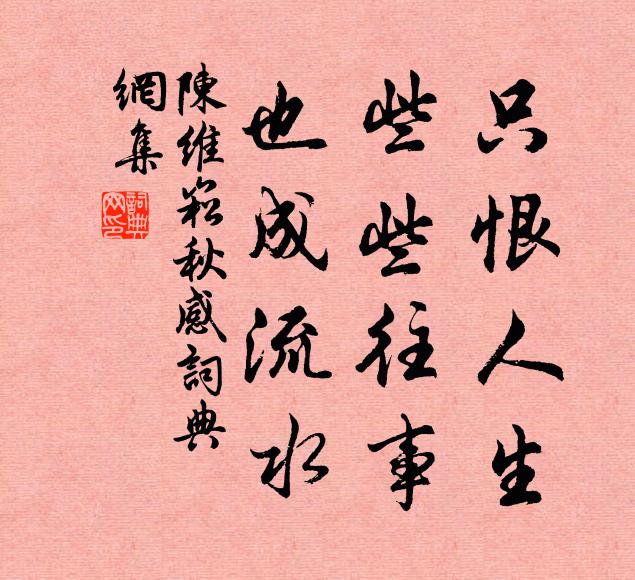 只恨人生
些些往事
也成流水
陳維崧秋感詞典
網集
詞典網印